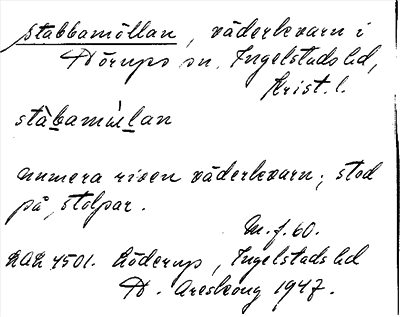 stabbamöllan, väderkvarn i
sn, Ingelstads hd,
Krist. l.
stàbamöllan
numera riven väderkvarn; stod
på stolpar.
m. f. 60.
4501. Löderup, Ingelstads hd
Areskoug 1947.